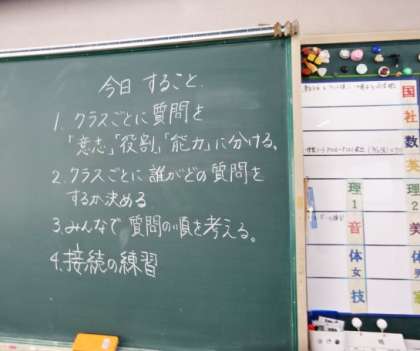 今日 すること
1. クラスごとに質問を
「意志」「役割」「能力」に分ける。
2. クラスごとに誰がどの質問を
するか決める
3. みんなで 質問の順を考える。
4. 接続の練習
国
社
数
英
理1
理2
音
美
体女
体
技